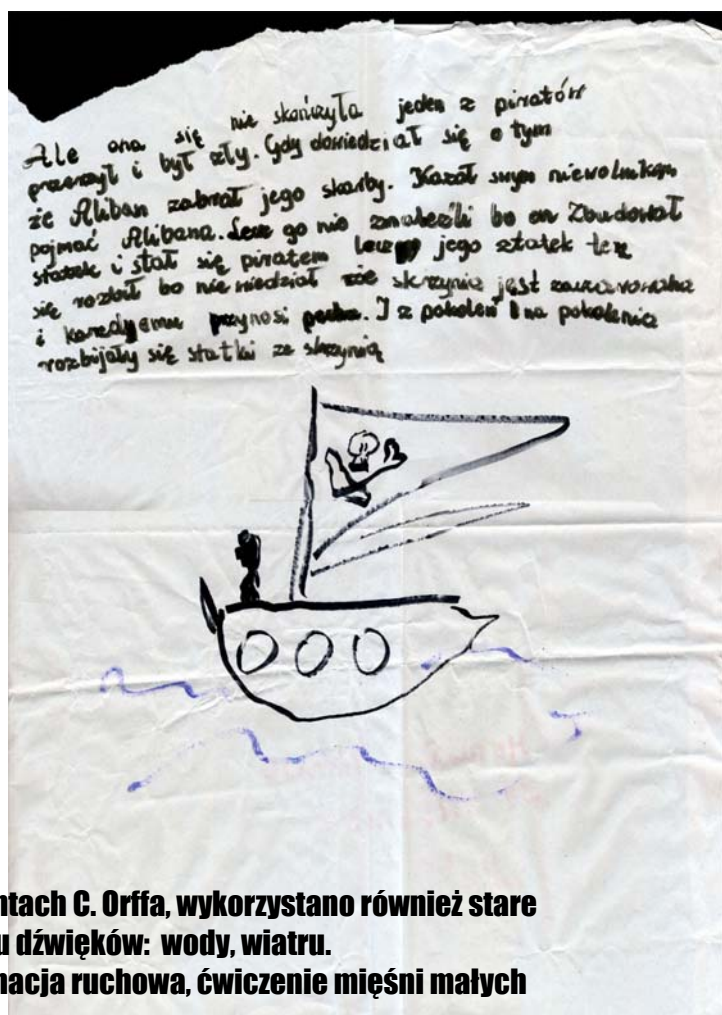 Ale ona się nie skończyła jeden z piratów
przeżył i był zły. Gdy dowiedział się o tym
że Aliban zabrał jego skarby. Kazał swym niewolnikom
pojmać Alibana. Lecz go nie znaleźli bo on Zbudował
statek i stał się piratem lecz jego statek też
się rozbił bo nie wiedział że skrzynia jest
i każdemu przynosi pecha. I z pokoleń na pokolenia
rozbijały się statki ze skrzynią
ntach C. Orffa, wykorzystano również stare
u dźwięków: wody, wiatru.
nacja ruchowa, ćwiczenie mięśni małych